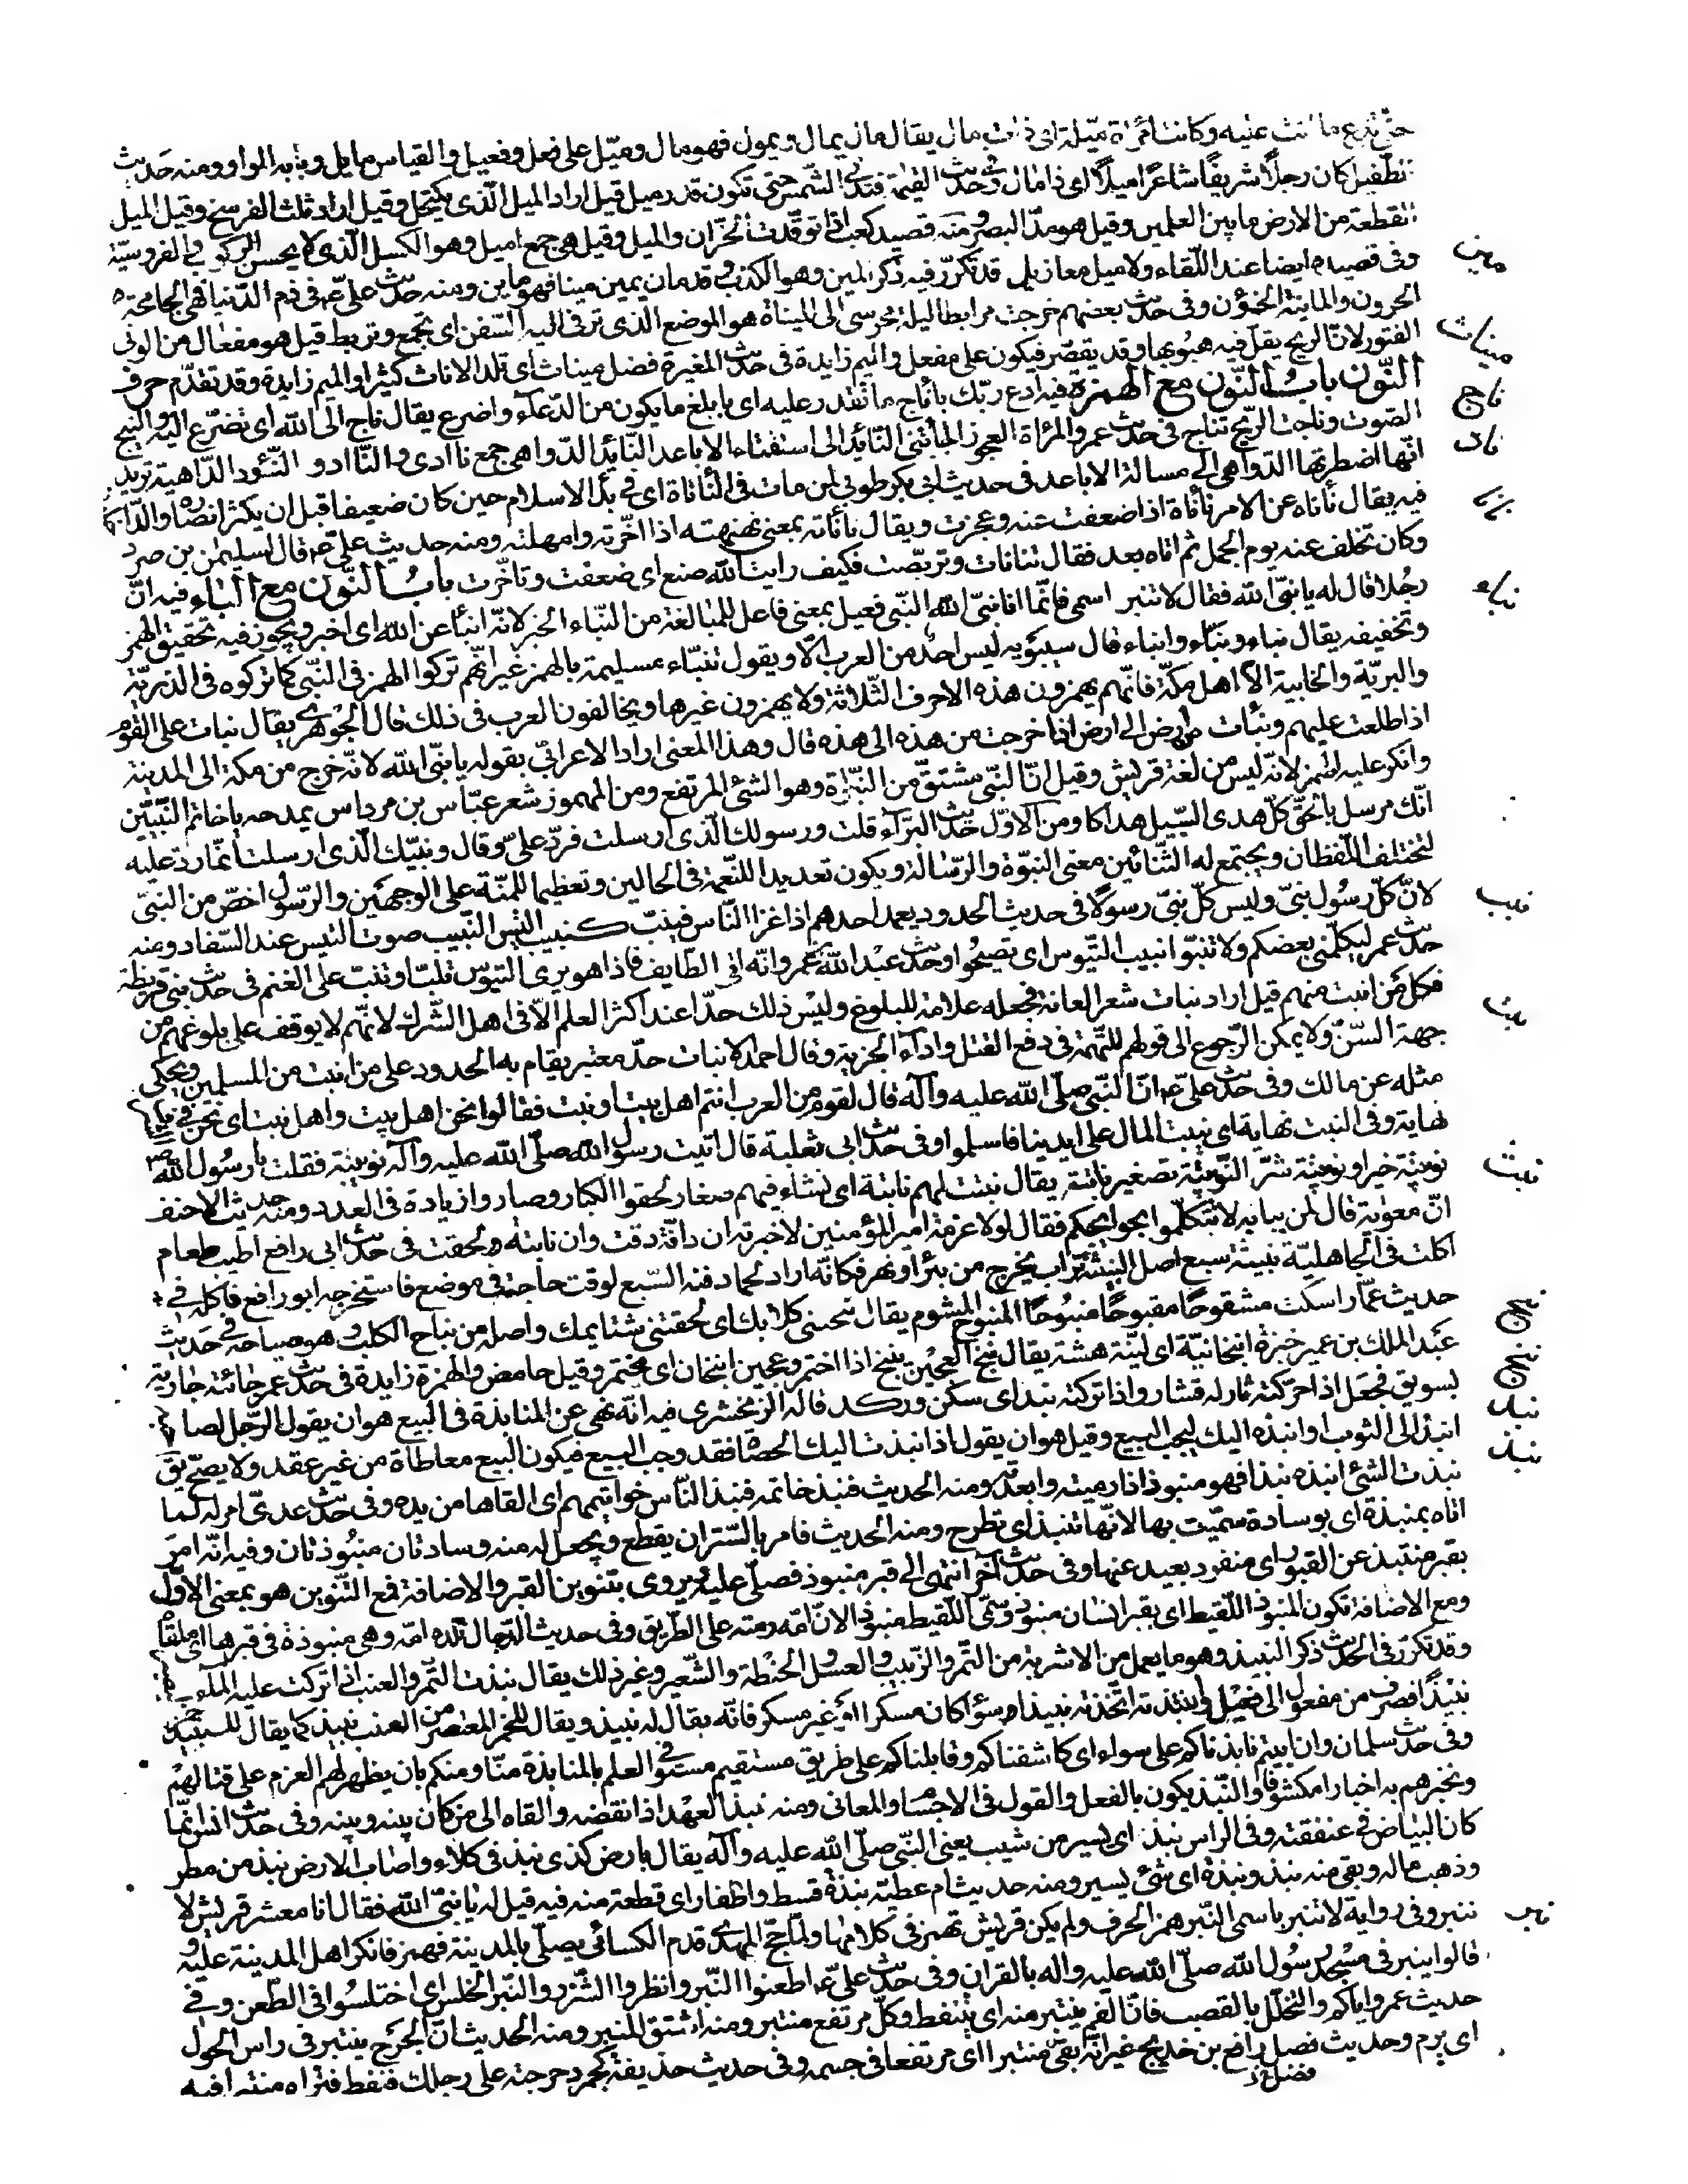 وكانت امرأة ميّلة اى ذات مال يقال مال يمال ويمول فهو مال وميّل على فعل وفعيل والقياس مايل وبابه الواو ومنه حديث
الطفيل كان رجلًا شريفًا شاعرًا ميلًا اى ذا مال وفى حديث القيمة فتدنى الشمس حتى تكون قدر ميل قيل اراد الميل الّذى يكتحل به وقيل اراد ثلث الفرسخ وقيل الميل
القطعة من الارض ما بين العلمين وقيل هو مدّ البصر ومنه قصيد كعب اذا توقّدت الحزّان والميل وقيل هى جمع اميل وهو الكسل الّذى لا يحسن الركوب والفروسيّة
وفى قصيده ايضا عند اللّقاء ولا ميل معازيل قد تكرّر فيه ذكر المين وهو الكذب وقد مان يمين مينا فهو ماين ومنه حديث علىّ عم فى ذم الدّنيا فهى الجامحة
الحرون والماينة الخؤن وفى حديث بعضهم خرجت مرابطا ليلة محرسى الى الميناة هو الموضع الذى ترفأ اليه السّفن اى تجمع وتربط قيل هو مفعال من الونى
الفتور لانّ الريح يقلّ فيه هبوبها وقد يقصّر فيكون على مفعل والميم زايدة فى حديث المغيرة فضل ميناث اى تلد الاناث كثيرا والميم زايدة وقد تقدّم حرف
النّون باب النّون مع الهمزة فيه ادع ربّك بانأج ما تقدر عليه اى بابلغ ما يكون من الدّعاء واضرع يقال ناج الى الله اى تضرّع اليه والنيج
الصّوت وناجت الرّيح تناج فى حديث عمر والمراة العجوز اجأتنى النّائد الى استيشاء الاباعد النّائد الدّواهى جمع ناادى والنّاادو النّئود الدّاهية تريد
انّها اضطرتها الدّواهى الى مسألة الاباعد فى حديث ابى بكر طوبى لمن مات فى النّأناة اى فى بدأ الاسلام حين كان ضعيفا قبل ان يكثر انصاره والدّا
فيه يقال نأناه عن الامر نأناة اذا ضعفت عنه وعجزت ويقال نأناته بمعنى نهنهته اذا اخّرته وامهلته ومنه حديث علىّ عم قال لسليمن بن صرد
وكان تخلف عنه يوم الجمل ثم اتاه بعد فقال تنانات وتربصت فكيف رايت الله صنع اى ضعفت وتأخّرت باب النّون مع الباء فيه انّ
رجلا قال له يا نبىّ الله فقال لا تنبر اسمى فانّما انا نبىّ الله النّبى فعيل بمعنى فاعل للمبالغة من النّباء الخبر لانّه انبأ عن الله اى اخبر ويجوز فيه تحقيق الهمز
وتخفيفه يقال نباء ونبّاء وانباء قال سيبويه ليس احد من العرب الّا ويقول تنبّاء مسيلمة بالهمز غير انّهم تركوا الهمز فى النّبى كما تركوه فى الذريّة
والبريّة والخابية الّا اهل مكّة فانّهم يهمزون هذه الاحرف الثّلاثة ولا يهمزون غيرها ويخالفون العرب فى ذلك قال الجوهرى يقال نبات على القوم
اذا طلعت عليهم ونبأت من ارض الى ارض اذا خرجت من هذه الى هذه قال وهذا المعنى اراد الاعرابىّ بقوله يا نبىّ الله لانّه خرج من مكة الى المدينة
وانكر عليه الهمز لانّه ليس من لغة قريش وقيل انّ النّبى مشتقّ من النّباوة وهو الشئ المرتفع ومن المهموز شعر عبّاس بن مرداس يمدحه يا خاتم النّبيّين
انّك مرسل بالحقّ كلّ هدى السّبيل هداكا ومن الاوّل حديث البرآء قلت ورسولك الّذى ارسلت فردّ علىّ وقال ونبيّك الّذى ارسلت انّما ردّ عليه
لتختلف اللّفظان ويجتمع له الثّنائين معنى النبوّة والرّسالة ويكون تعديدا للنّعمة فى الحالين وتعظيما للمنّة على الوجهين والرّسول اخصّ من النبىّ
لانّ كلّ رسول نبىّ وليس كلّ نبىّ رسولًا فى حديث الحدود يعمد احدهم اذا غزا النّاس فينبّ كنبيب التيس النّبيب صوت التيس عند السّفاد ومنه
حديث عمر ليكلّمنى بعضكم ولا تنبّوا نبيب التّيوس اى تصيحوا وحديث عبد الله بن عمر وانّه اتى الطّايف فاذا هو يرى التيوس تلبّ او تنبّ على الغنم فى حديث بنى قريظة
فكلّ من انبت منهم قيل اراد نبات شعر العانة فجعله علامة للبلوغ وليس ذلك حدّا عند اكثر العلم الّا فى اهل الشّرك لانّهم لا يوقف على بلوغهم من
جهة السّنّ ولا يمكن الرّجوع الى قولهم للتّهمة فى دفع القتل واداء الجزية وقال احمد الانبات حدّ معتبر يقام به الحدود على من انبت من المسلمين ويحكى
مثله عن مالك وفى حديث علىّ عم انّ النّبىّ صلّى الله عليه وآله قال لقوم من العرب انتم اهل بيت او نبت فقالوا نحن اهل بيت واهل نبت اى نحن فى
نهاية وفى النبت نهاية اى نبت المال على ايدينا فاسلموا وفى حديث ابى ثعلبة قال اتيت رسول الله صلّى الله عليه وآله نويبتة فقلت يا رسول الله
نويبتة خير او نويبتة شرّ النّويبتة تصغير نابتة يقال نبتت لهم نابتة اى نشاء فيهم صغار لحقوا الكبار وصاروا زيادة فى العدد ومنه حديث الاحنف
انّ معوية قال لمن ببابه لا تتكلّموا بحوايجكم فقال لولا عزمة امير المؤمنين لاخبرته ان دافّة دفت وان نابتة لحقت فى حديث ابى رافع اطيب طعام
اكلت فى الجاهليّة نبيثة سبع اصل النبيثة تراب يخرج من بئر او نهر فكانّه اراد لحما دفنه السّبع لوقت حاجته فى موضع فاستخرجه ابو رافع فاكله فى
حديث عمّار اسكت مشقوحًا مقبوحًا منبوحًا المنبوح المشوم يقال نبحتنى كلابك اى لحقتنى شتايمك واصله من نباح الكلب وهو صياحه فى حديث
عبد الملك بن عمير خبزة انبخانيّة اى ليّنة هشة يقال نبخ العجين ينبخ اذا اختمر وعجين انبخان اى مختمر وقيل حامض والهمزة زايدة فى حديث عمر جائته جارية
بسويق فجعل اذا حرّكته ثار له قشار واذا تركته نبد اى سكن وركد قاله الزّمخشرى فيه انّه نهى عن المنابذة فى البيع هو ان يقول الرّجل لصا
انبذ الى الثوب او انبذه اليك ليجب البيع وقيل هو ان يقول اذا نبذت اليك الحصاة فقد وجب البيع فيكون البيع معاطاة من غير عقد ولا يصحّ يق
نبذت الشئ انبذه نبذا فهو منبوذ اذا رميته وابعدته ومنه الحديث فنبذ خاتمه فنبذ النّاس خواتيمهم اى القاها من يده وفى حديث عدىّ امر له لما
اتاه بمنبذة اى بوسادة سمّيت بها لانّها تنبذ اى تطرح ومنه الحديث فامر بالسّتر ان يقطع ويجعل له منه وسادتان منبوذتان وفيه انّه امرّ
بقبر منتبذ عن القبور اى منفرد بعيد عنها وفى حديث آخر انتهى الى قبر منبوذ فصلّى عليه يروى بتنوين القبر والاضافة فمع التّنوين هو بمعنى الاوّل
ومع الاضافة تكون المنبوذ اللّقيط اى بقبر انسان منبوذ وسمّى اللّقيط منبوذا لانّ امّه رمته على الطّريق وفى حديث الدّجال تلده امّه وهى منبوذة فى قبرها اى ملقاة
وقد تكرّر فى الحديث ذكر النبيذ وهو ما يعمل من الاشربة من التّمر والزّبيب والعسل والحنطة والشّعير وغير ذلك يقال نبذت التّمر والعنب اذا تركت عليه المآء
نبيذًا فصرف من مفعول الى فعيل وانتبذته اتّخذته نبيذا وسواء كان مسكرا او غير مسكر فانّه يقال له نبيذ ويقال للخمر المعتصر من العنب نبيذ كما يقال للنبيذ
وفى حديث سلمان وان ابيتم نابذناكم على سواء اى كاشفناكم وقابلناكم على طريق مستقيم مستو فى العلم بالمنابذة منّا ومنكم بان يظهر لهم العزم على قتالهم
ونخبرهم به اخبارا مكشوفا والنّبذ يكون بالفعل والقول فى الاجسام والمعانى ومنه نبذ العهد اذا نقضه والقاه الى من كان بينه وبينه وفى حديث انس انّما
كان البياض فى عنفقته وفى الراس نبذ اى يسير من شيب يعنى النّبىّ صلّى الله عليه وآله يقال بارض كذى نبذ فى كلاء واصاب الارض نبذ من مطر
وذهب ماله وبقى منه نبذ ونبذة اى شئ يسير ومنه حديث ام عطيّة نبذة قسط واظفار اى قطعة منه فيه قيل له يا نبىّ الله فقال انا معشر قريش لا
ننبر وفى رواية لا تنبر باسمى النّبر همز الحرف ولم يكن قريش تهمز فى كلامها ولمّا حجّ المهدى قدم الكسائى يصلّى بالمدينة فهمز فانكر اهل المدينة عليه و
قالوا ينبر فى مسجد رسول الله صلّى الله عليه وآله بالقران وفى حديث علىّ عم اطعنوا النّبر وانظروا الشّزر والنّبر الخلس اى اختلسوا فى الطّعن وفى
حديث عمر واياكم والتخلّل بالقصب فانّ الفم ينتبر منه اى يتنفط وكلّ مرتفع منتبر ومنه اشتق المنبر ومنه الحديث انّ الجرح ينتبر فى راس الحول
اى يرم وحديث فصل رافع بن خديج غير انّه بقى منتبرا اى مرتفعا فى جسمه وفى حديث حذيفة كجمر دحرجته على رجلك فنفط فتراه منتبرا فيه
مين
ميناث
ناج
ناد
نباء
نبب
نبت
نبث
نبح
نبخ
نبد
نبذ
نبر